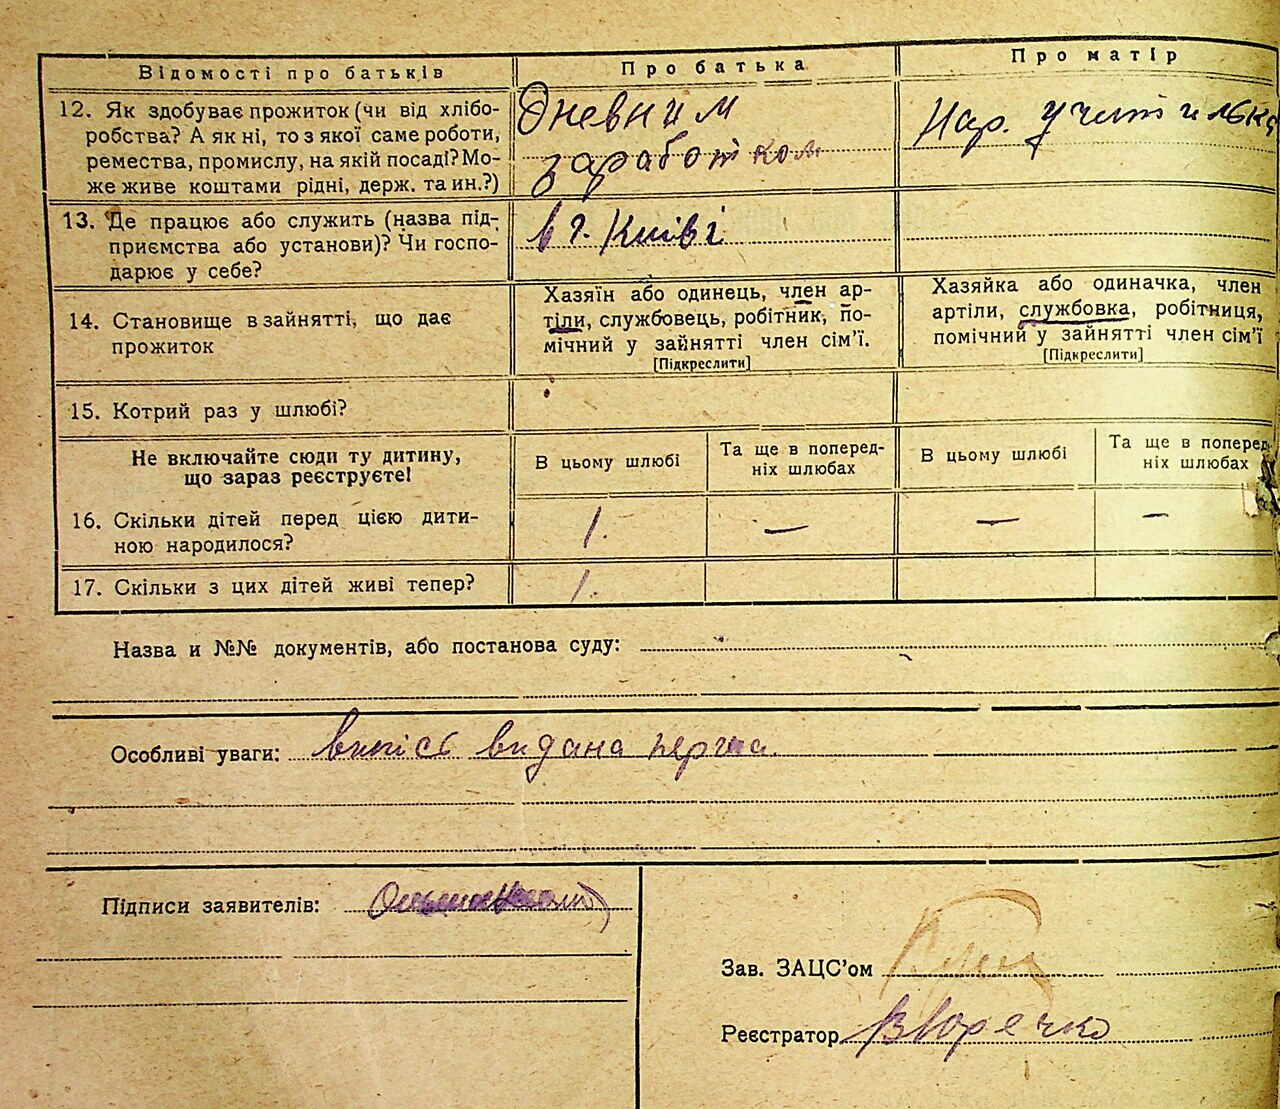 Відомості про батьків
Про батька
Про матір
12. Як здобуває прожиток (чи від хлібо-
робства? А як ні, то з якої саме роботи,
ремества, промислу, на якій посаді? Мо-
же живе коштами рідні, держ. та ин.?)
Дневним
заработком
Нар. учителька
13. Де працює або служить (назва під-
приємства або установи)? Чи госпо-
дарює у себе?
в г. Київі
14. Становище в зайнятті, що дає
прожиток
Хазяїн або одинець, член ар-
тіли, службовець, робітник, по-
мічний у зайнятті член сім'ї.
[Підкреслити]
Хазяйка або одиначка, член
артіли, службовка, робітниця,
помічний у зайнятті член сім'ї
[Підкреслити]
15. Котрий раз у шлюбі?
Не включайте сюди ту дитину,
що зараз реєструєте!
В цьому шлюбі
Та ще в поперед-
ніх шлюбах
В цьому шлюбі
Та ще в поперед-
ніх шлюбах
16. Скільки дітей перед цією дити-
ною народилося?
1. — — —
17. Скільки з цих дітей живі тепер?
1.
Назва и №№ документів, або постанова суду:
Особливі уваги: випісь видана перша.
Підписи заявителів:
Зав. ЗАЦС'ом
Реєстратор